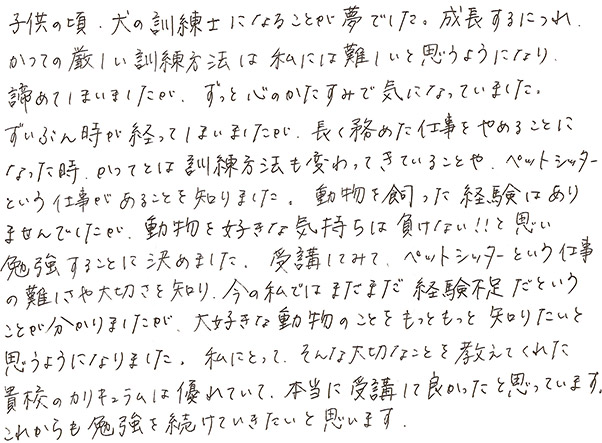 子供の頃、犬の訓練士になることが夢でした。成長するにつれ、
かつての厳しい訓練方法は私には難しいと思うようになり、
諦めてしまいましたが、ずっと心のかたすみで気になっていました。
ずいぶん時が経ってしまいましたが、長く務めた仕事をやめることに
なった時、かつてとは訓練方法も変わってきていることや、ペットシッター
という仕事があることを知りました。動物を飼った経験はあり
ませんでしたが、動物を好きな気持ちは負けない!!と思い
勉強することに決めました。受講してみて、ペットシッターという仕事
の難しさや大切さを知り、今の私ではまだまだ経験不足だという
ことが分かりましたが、大好きな動物のことをもっともっと知りたいと
思うようになりました。私にとって、そんな大切なことを教えてくれた
貴校のカリキュラムは優れていて、本当に受講して良かったと思っています。
これからも勉強を続けていきたいと思います。